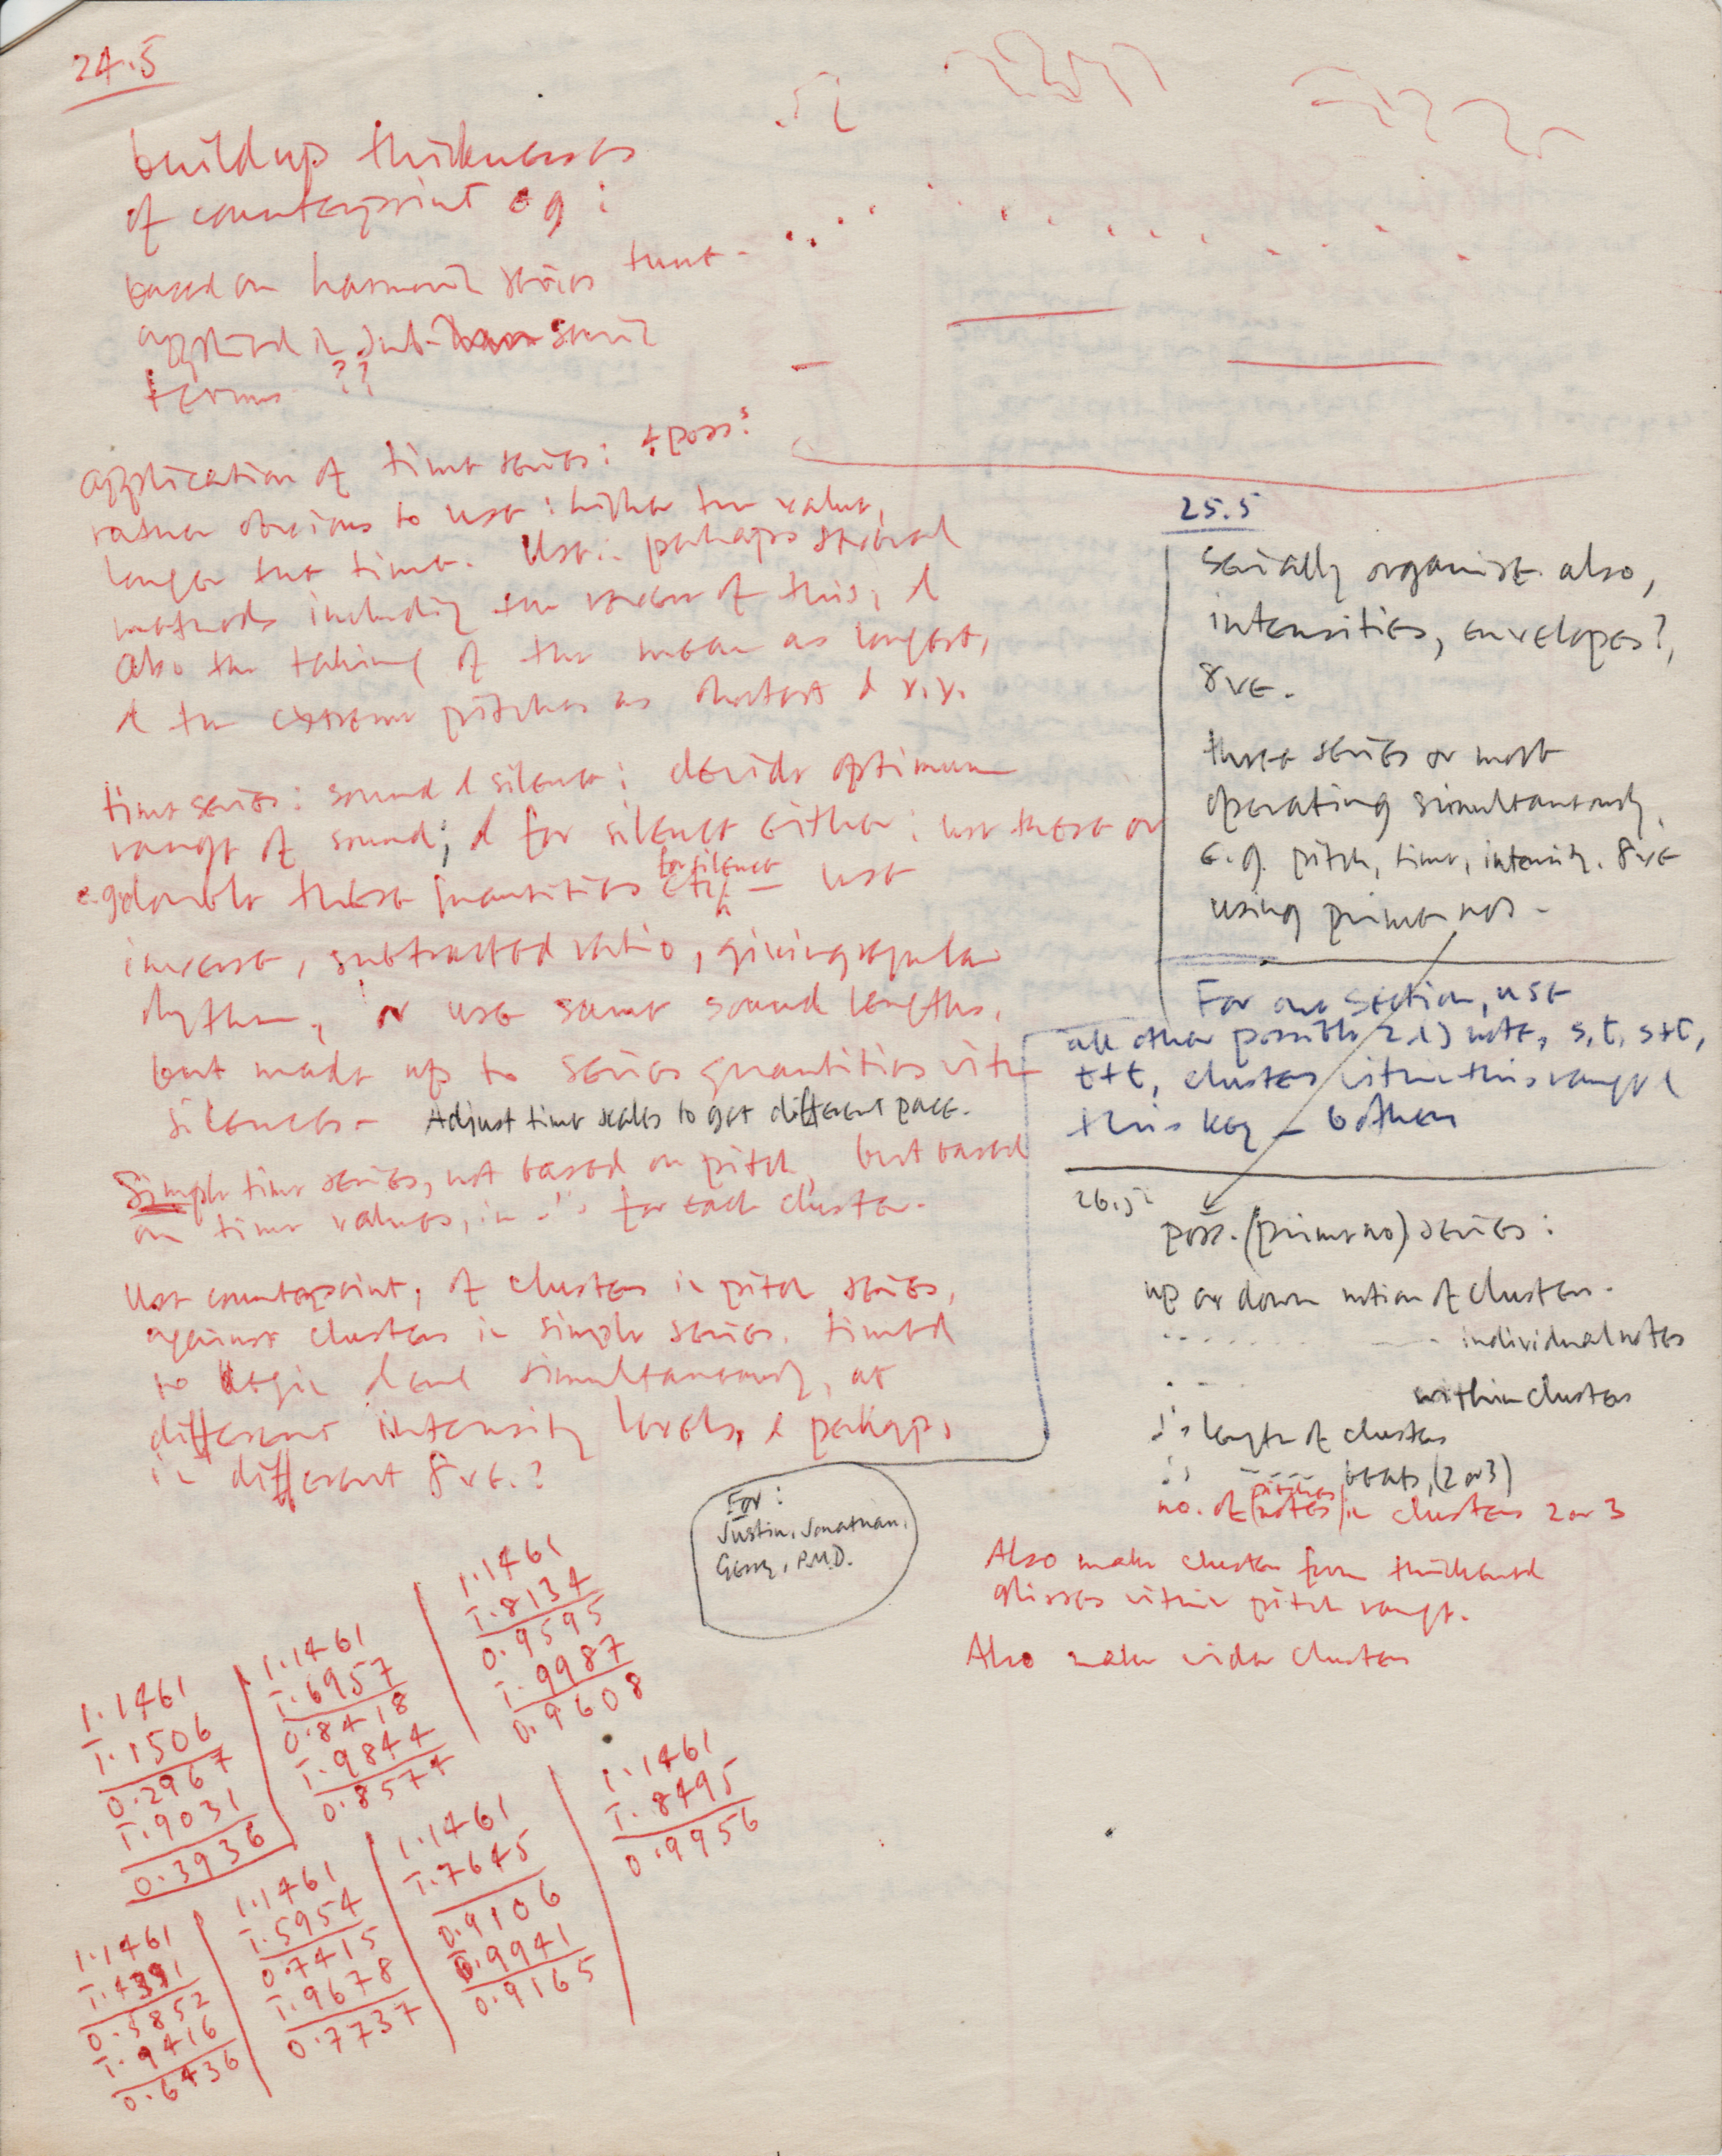 24.5
build up thicknesses
of counterpoint eg:
based on harmonic series tune -
applied in sub-
terms ??
application of time series: + poss:s
rather obvious to use: higher the value,
longer the time. Use: perhaps several
methods including the reverse of this, &
also the taking of the mean as longest,
& the extreme pitches as shortest & v.v.
time series: sound & silence: decide optimum
range of sound; & for silence either: use these or
e.g. double these quantities etc. for silence — use
inverse, subtracted ratio, giving regular
rhythm, or use same sound lengths,
but made up to series quantities with
silences - Adjust time scales to get different pace.
Simple time series, not based on pitch, but based
on time values, in for each cluster.
Use counterpoint, of clusters in pitch series,
against clusters in simple series, timed
to begin & end simultaneously, at
different intensity levels, & perhaps,
in different 8ve.?
25.5
serially organise also,
intensities, envelopes?,
8ve.
three series or more
operating simultaneously,
e.g. pitch, time, intensity, 8ve
using prime nos -
For one section, use
all other possible 2 & 3 note, s, t, s+t,
t+t, clusters within this range &
this key - 6 others
26.5
poss. (prime no) series:
up or down motion of clusters.
individual notes
within clusters
length of clusters
beats, (2 or 3)
no. of (notes / pitches) in clusters 2 or 3
Also make clusters from thickened
glisses within pitch range.
Also make wider clusters
For:
Justin, Jonathan,
Gerry, P.M.D.
1.1461
1.8134
0.9595
1.9987
0.9608
1.1461
1.6957
0.8418
1.9844
0.8577
1.1461
1.1506
0.2967
1.9031
0.3936
1.1461
1.8495
0.9956
1.1461
1.7645
0.9106
0.9941
0.9165
1.1461
1.5954
0.7415
1.9678
0.7737
1.1461
1.4391
0.5852
1.9416
0.6436